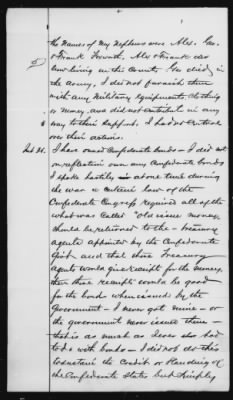 the names of my nephews were Alex. Geo.
& Frank Alex & Frank are
now living in the County. Geo died in
the army, I did not furnish them
with any military equipments, clothing
or money, and did not contribute in any
way to their support. I had no control
over their actions.
Int 31. I have owned Confederate bonds - I did not
on reflection own any Confederate bonds
I spoke hastily - at one time during
the war a certain law of the
Confederate Congress required all of the
what was called "old issue money
should be returned to the - treasury
agents appointed by the Confederate
Govt and that these Treasury
agents would give receipt for the money,
then these receipts would be good
for the bonds when issued by the
Government - I never got mine - or
the government never issued them -
that is as much as I ever had
to do with bonds - I did not do this
to sustain the credit or standing of
the Confederate States but simply